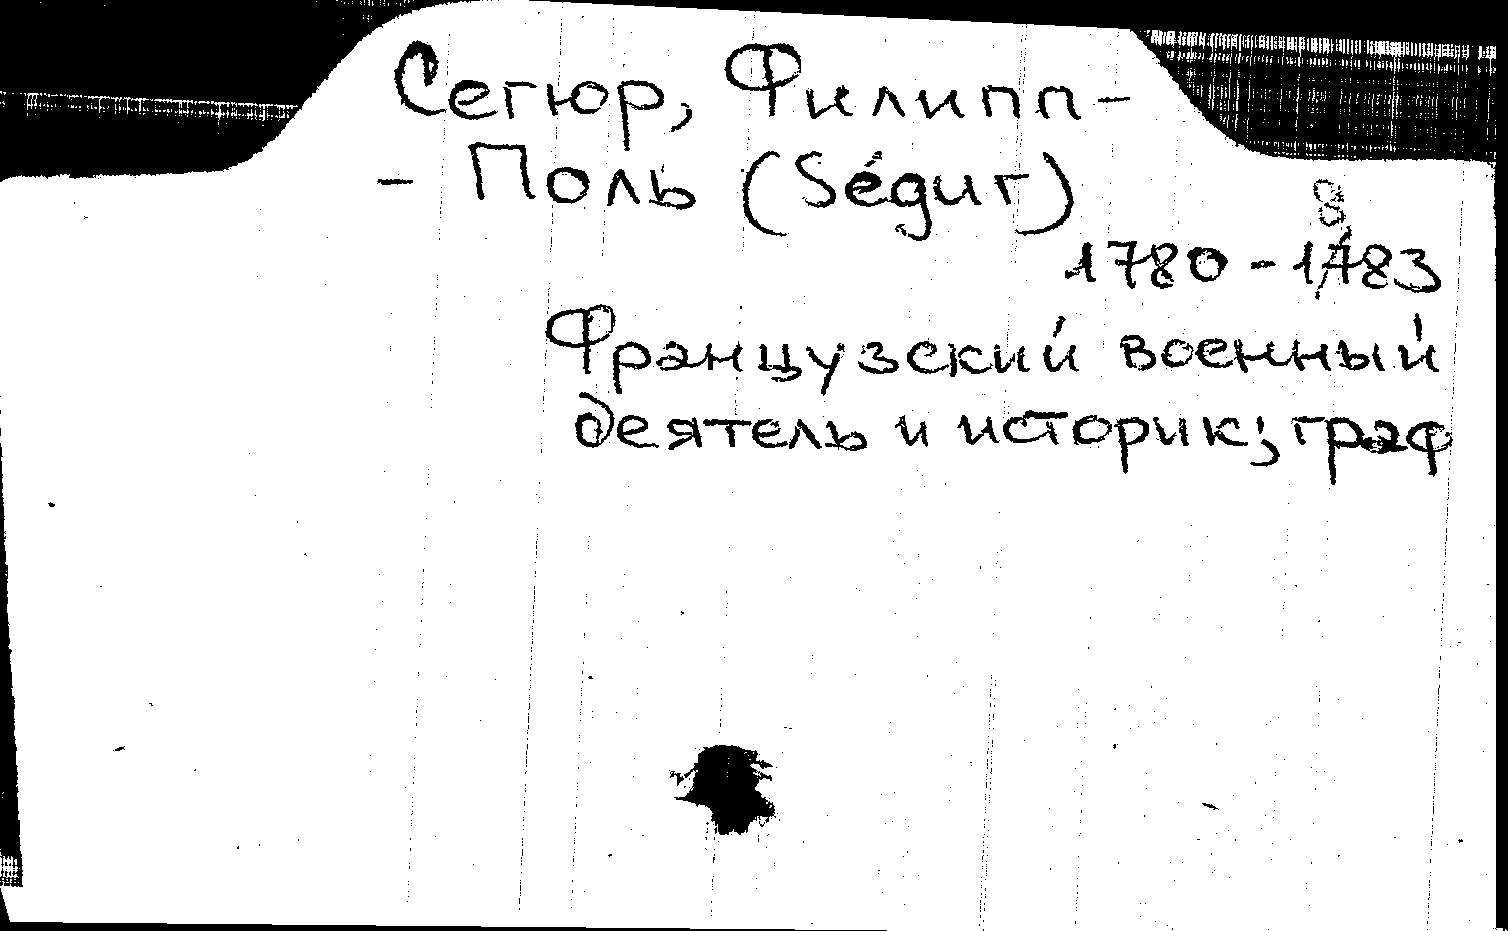 Сегюр, Филипп-
- Поль (Ségur)
8
1780 - 1783
Французский военный
деятель и историк; граф